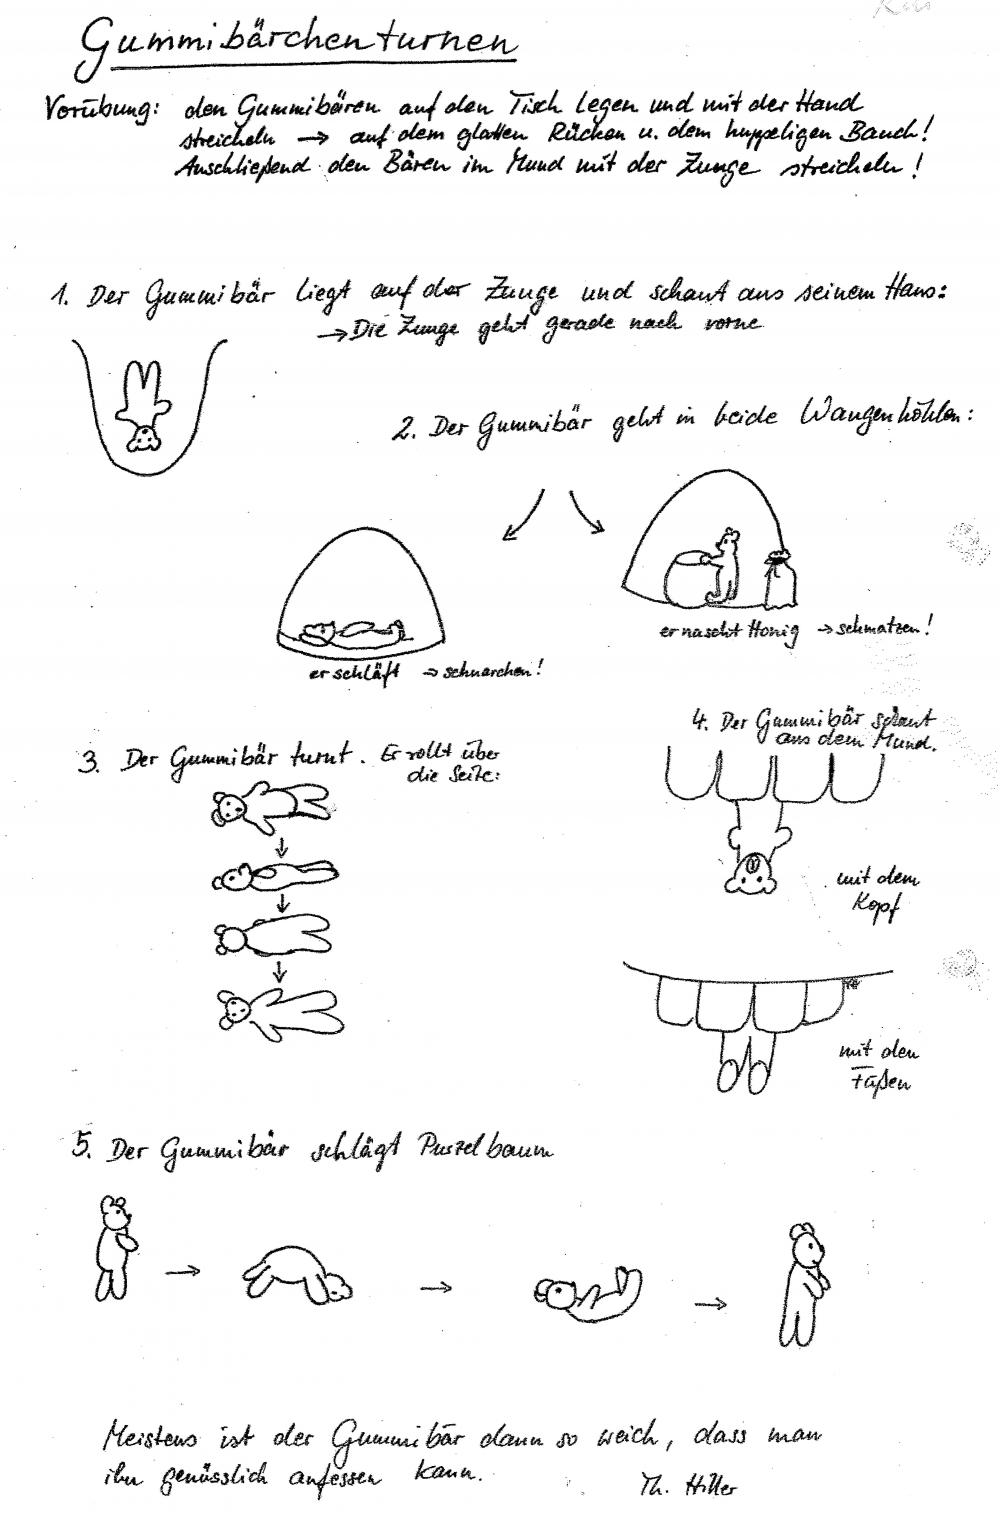 Gummibärchenturnen
Vorübung: den Gummibären auf den Tisch legen und mit der Hand
streicheln → auf dem glatten Rücken u. dem huppeligen Bauch!
Anschließend den Bären im Mund mit der Zunge streicheln!
1. Der Gummibär liegt auf der Zunge und schaut aus seinem Haus:
→ Die Zunge geht gerade nach vorne
2. Der Gummibär geht in beide Wangenhöhlen:
er nascht Honig → schmatzen!
er schläft → schnarchen!
3. Der Gummibär turnt. Er rollt über
die Seite:
4. Der Gummibär schaut
aus dem Mund.
mit dem
Kopf
mit den
Füßen
5. Der Gummibär schlägt Purzelbaum
Meistens ist der Gummibär dann so weich, dass man
ihn genüsslich aufessen kann.
Th. Hiller